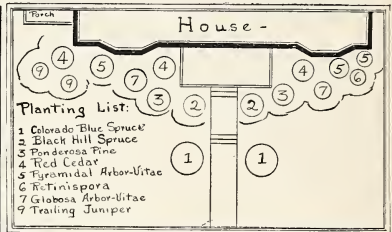 Porch
House -
4
5
5
4
5
6
9
9
7
4
7
3
3
2
2
Planting List:
1 Colorado Blue Spruce
2 Black Hill Spruce
3 Ponderosa Pine
4 Red Cedar
5 Pyramidal Arbor-Vitae
6 Retinispora
7 Globosa Arbor-Vitae
9 Trailing Juniper
1
1